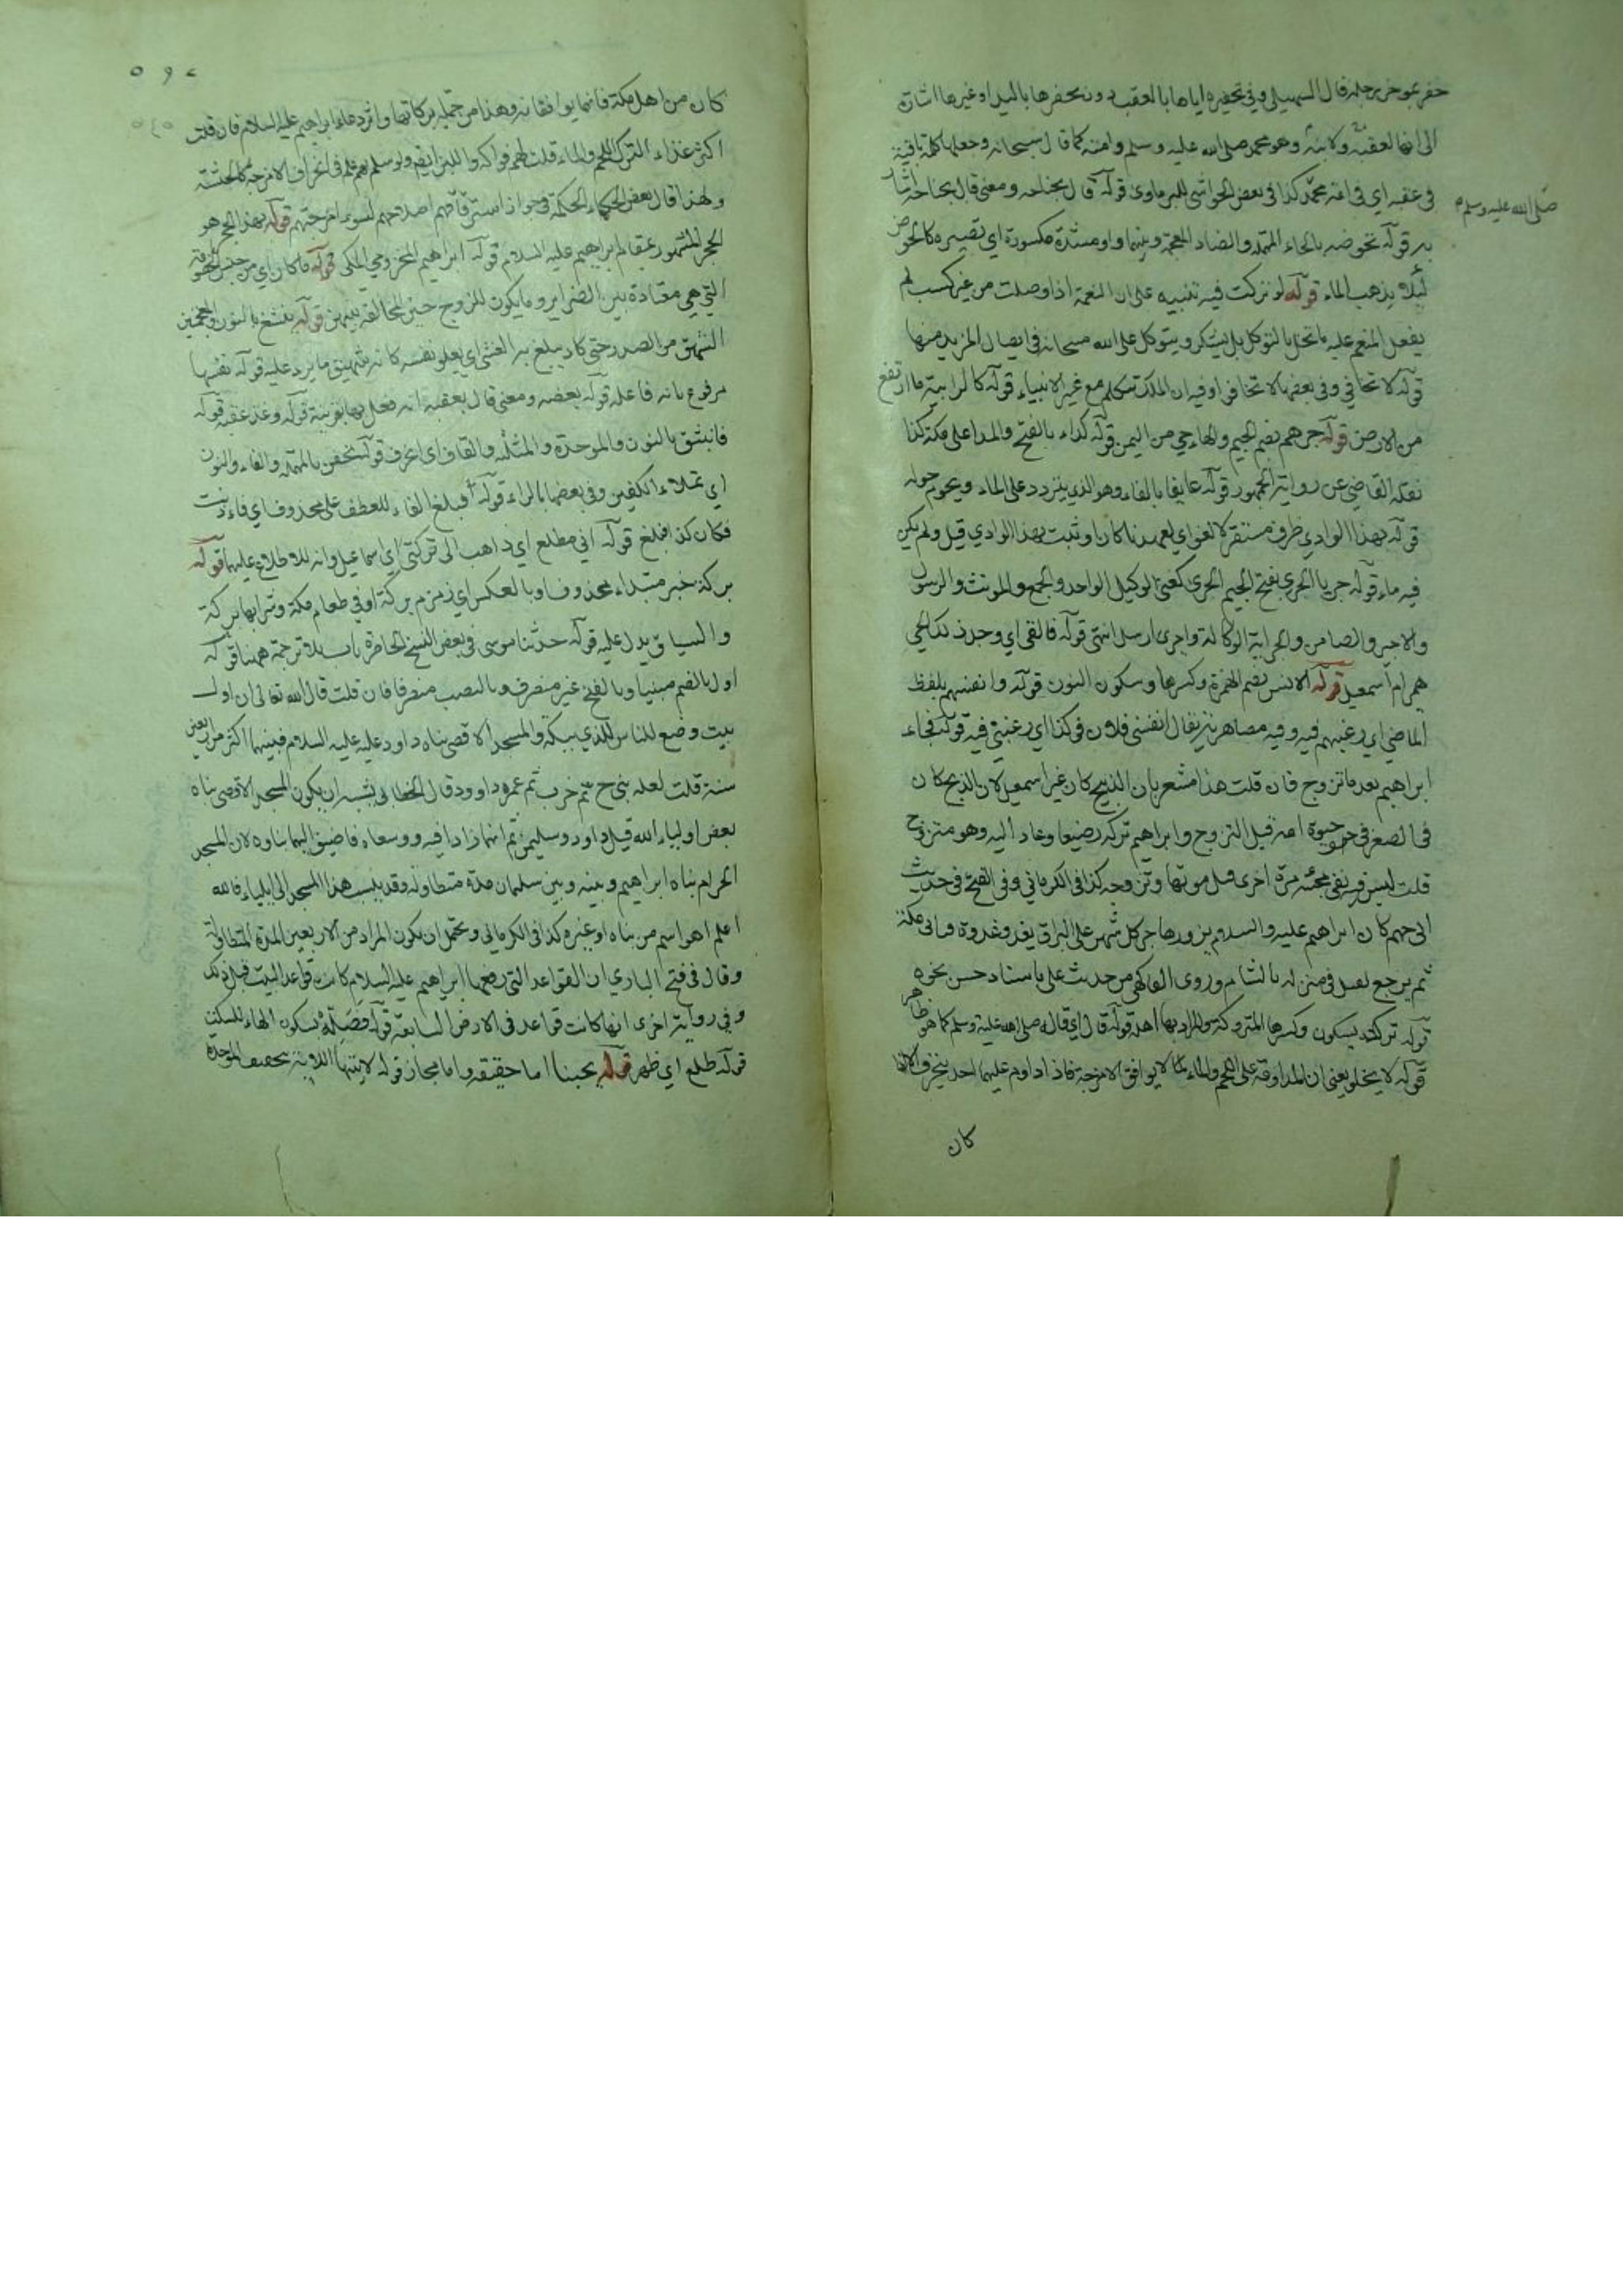 حفر بمؤخر رجله قال السهيلي وفي تحفيره اياها بالعقب دون يحفرها باليد او غيرها اشارة
الى انها لعقبه ولابنه وهو محمد صلى الله عليه وسلم وامته كما قال سبحانه وجعلها كلمة باقية
في عقبه اي في امة محمد كذا في بعض الحواشي للبرماوي قوله قال بجناحه ومعنى قال بجناحه اشار
صلى الله عليه وسلم
به قوله تحوضه بالحاء المهملة والضاد المعجمة وبينهما واو مشددة مكسورة اي تصيره كالحوض
لئلا يذهب الماء قوله لو تركت فيه تنبيه على ان النعمة اذا وصلت من غير كسب لم
يفعل المنعم عليه ما تخل بالتوكل بل يشكر ويتوكل على الله سبحانه في ايصال المزيد منها
قوله لا تخافي وفي بعضها لا تخافوا وفيه ان الملك يتكلم مع غير الانبياء قوله كالرابية ما ارتفع
من الارض قوله جرهم بضم الجيم والهاء حي من اليمن قوله كداء بالفتح والمد اعلى مكة كذا
نقله القاضي عن رواية الجمهور قوله عايفا بالفاء وهو الذي يتردد على الماء ويحوم حوله
قوله بهذا الوادي ظرف مستقر لا لغو اي لعهدنا كان او ثبت بهذا الوادي قيل ولم يكن
فيه ماء قوله جريا الجري بفتح الجيم الجرى كغنى الوكيل الواحد والجمع والمونث والرسول
والاجير والضامن والجراية الوكالة واجرى ارسل انتهى قوله فالفى اي وجد ذلك الحي
الجرهم ام اسمعيل قوله الانس بضم الهمزة وكسرها وسكون النون قوله وانفسهم بلفظ
الماضي اي رغبهم فيه وفيه مصاهرته يقال انفسني فلان في كذا اي رغبني فيه قوله فجاء
ابراهيم بعد ما تزوج فان قلت هذا مشعر بان الذبيح كان غير اسمعيل لان الذبيح كان
في الصغر في حيوة امه قبل التزوج وابراهيم تركه رضيعا وعاد اليه وهو متزوج
قلت ليس فيه نفى مجئه مرة اخرى قبل موتها وتزوجه كذا في الكرماني وفي الفتح في حديث
ابي جهم كان ابراهيم عليه السلام يزور هاجر كل شهر على البراق يغدو غدوة فياتي مكة
ثم يرجع فيقيل في منزله بالشام وروى الفاكهي من حديث علي باسناد حسن نحوه
قوله تركته بسكون وكسرها المتروكة والمراد بها اهله قوله قال اي قال صلى الله عليه وسلم كما هو ظاهر
قوله لا يخلو يعني ان المداومة على اللحم والماء لما لا يوافق الامزجة فاذا داوم عليهما احد ينحرف الا اذا
كان
٥٩٤
كان من اهل مكة فانهما يوافقانه وهذا من جملة بركاتها واثر دعاء ابراهيم عليه السلام فان قلت
اكثر غذاء الترك اللحم والماء قلت لهم فواكه واللبن ايضا ولو سلم نعم فلهم في انحراف الامزجة كالحشنة
ولهذا قال بعض الحكماء الحكمة في جواز استرقاقهم اصلاحهم لسوء امزجتهم قوله بهذا الحجر هو
الحجر المشهور بمقام ابراهيم عليه السلام قوله ابراهيم المخزومي المكي قوله ما كان اي من جنس الخصومة
التي هي معتادة بين الضرائر وما يكون للزوج حين المخالفة بينهن قوله ينشغ بالنون والمعجمتين
الشهيق من الصدر حتى كاد يبلغ به الغشي اي يعلو نفسه كانه شهيق ما يرد عليه قوله نفسها
مرفوع بانه فاعله قوله بعقبه ومعنى قال بعقبه انه فعل بها بقرينة قوله وغمز عقبه قوله
فانبثق بالنون والموحدة والمثلثة والقاف اي انخرق قوله تحفن بالمهملة والفاء والنون
اي تملاء الكفين وفي بعضها بالراء قوله فبلغ الفاء للعطف على محذوف اي فاذنت
فكان كذا فبلغ قوله اني مطلع اي ذاهب الى تركتي اي اسماعيل وانه للاطلاع عليهما قوله
بركة خبر مبتداء محذوف او بالعكس اي زمزم بركة او في طعام مكة وشرابها بركة
والسياق يدل عليه قوله حدثنا موسى في بعض النسخ الحاضرة باب بلا ترجمة ههنا قوله
اول بالضم مبنيا وبالفتح غير منصرف وبالنصب منصرفا فان قلت قال الله تعالى ان اول
بيت وضع للناس للذي ببكة والمسجد الاقصى بناه داود عليه السلام فبينهما اكثر من اربعين
سنة قلت لعله بنى ح ثم خرب ثم عمره داوود قال الخطابي يشبه ان يكون المسجد الاقصى بناه
بعض اولياء الله قبل داود وسليمن ثم انهما زادا فيه ووسعاه فاضيف اليهما بناوه لان المسجد
الحرام بناه ابراهيم وبينه وبين سليمان مدة متطاولة وقد ينسب هذا المسجد الى ايلياء فالله
اعلم اهو اسم من بناه او غيره كذا في الكرماني ويحتمل ان يكون المراد من الاربعين المدة المتطاولة
وقال في فتح الباري ان القواعد التي رفعها ابراهيم عليه السلام كانت قواعد البيت قبل ذلك
وفي رواية اخرى انها كانت قواعد في الارض السابعة قوله فصله بسكون الهاء للسكت
قوله طلع اي ظهر قوله يحبنا اما حقيقة واما مجاز قوله لابتيها اللابة بتخفيف الموحدة